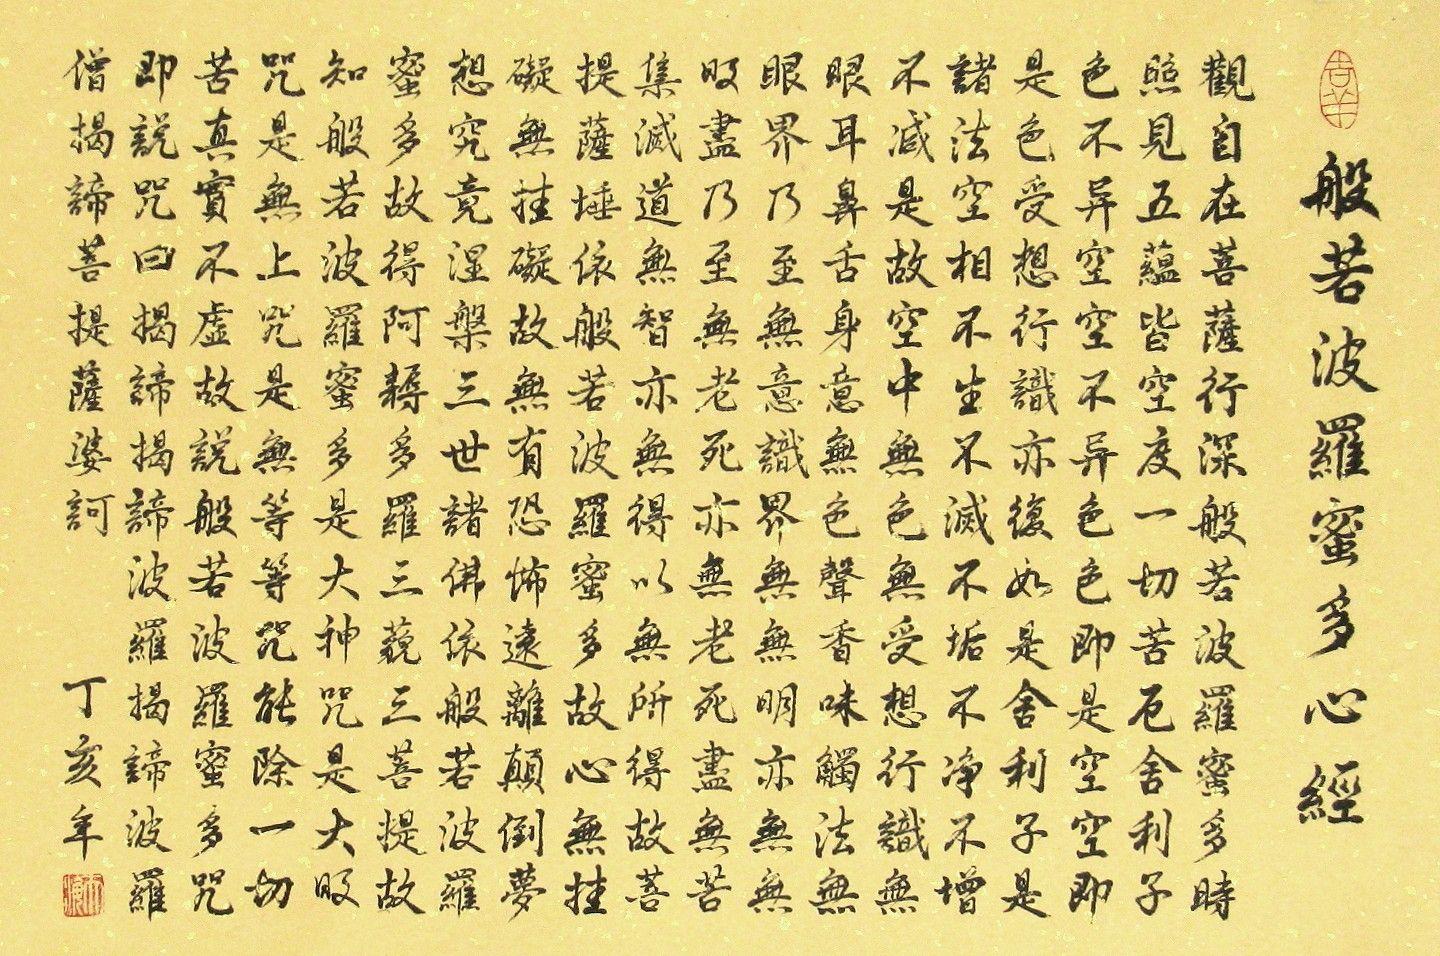 吉羊
般若波羅蜜多心經
觀自在菩薩行深般若波羅蜜多時
照見五蘊皆空度一切苦厄舍利子
色不异空空不异色色即是空空即
是色受想行識亦復如是舍利子是
諸法空相不生不滅不垢不净不增
不減是故空中無色無受想行識無
眼耳鼻舌身意無色聲香味觸法無
眼界乃至無意識界無無明亦無無
明盡乃至無老死亦無老死盡無苦
集滅道無智亦無得以無所得故菩
提薩埵依般若波羅蜜多故心無挂
礙無挂礙故無有恐怖遠離顛倒夢
想究竟涅槃三世諸佛依般若波羅
蜜多故得阿耨多羅三藐三菩提故
知般若波羅蜜多是大神咒是大明
咒是無上咒是無等等咒能除一切
苦真實不虛故說般若波羅蜜多咒
即說咒曰揭諦揭諦波羅揭諦波羅
僧揭諦菩提薩婆訶 丁亥年